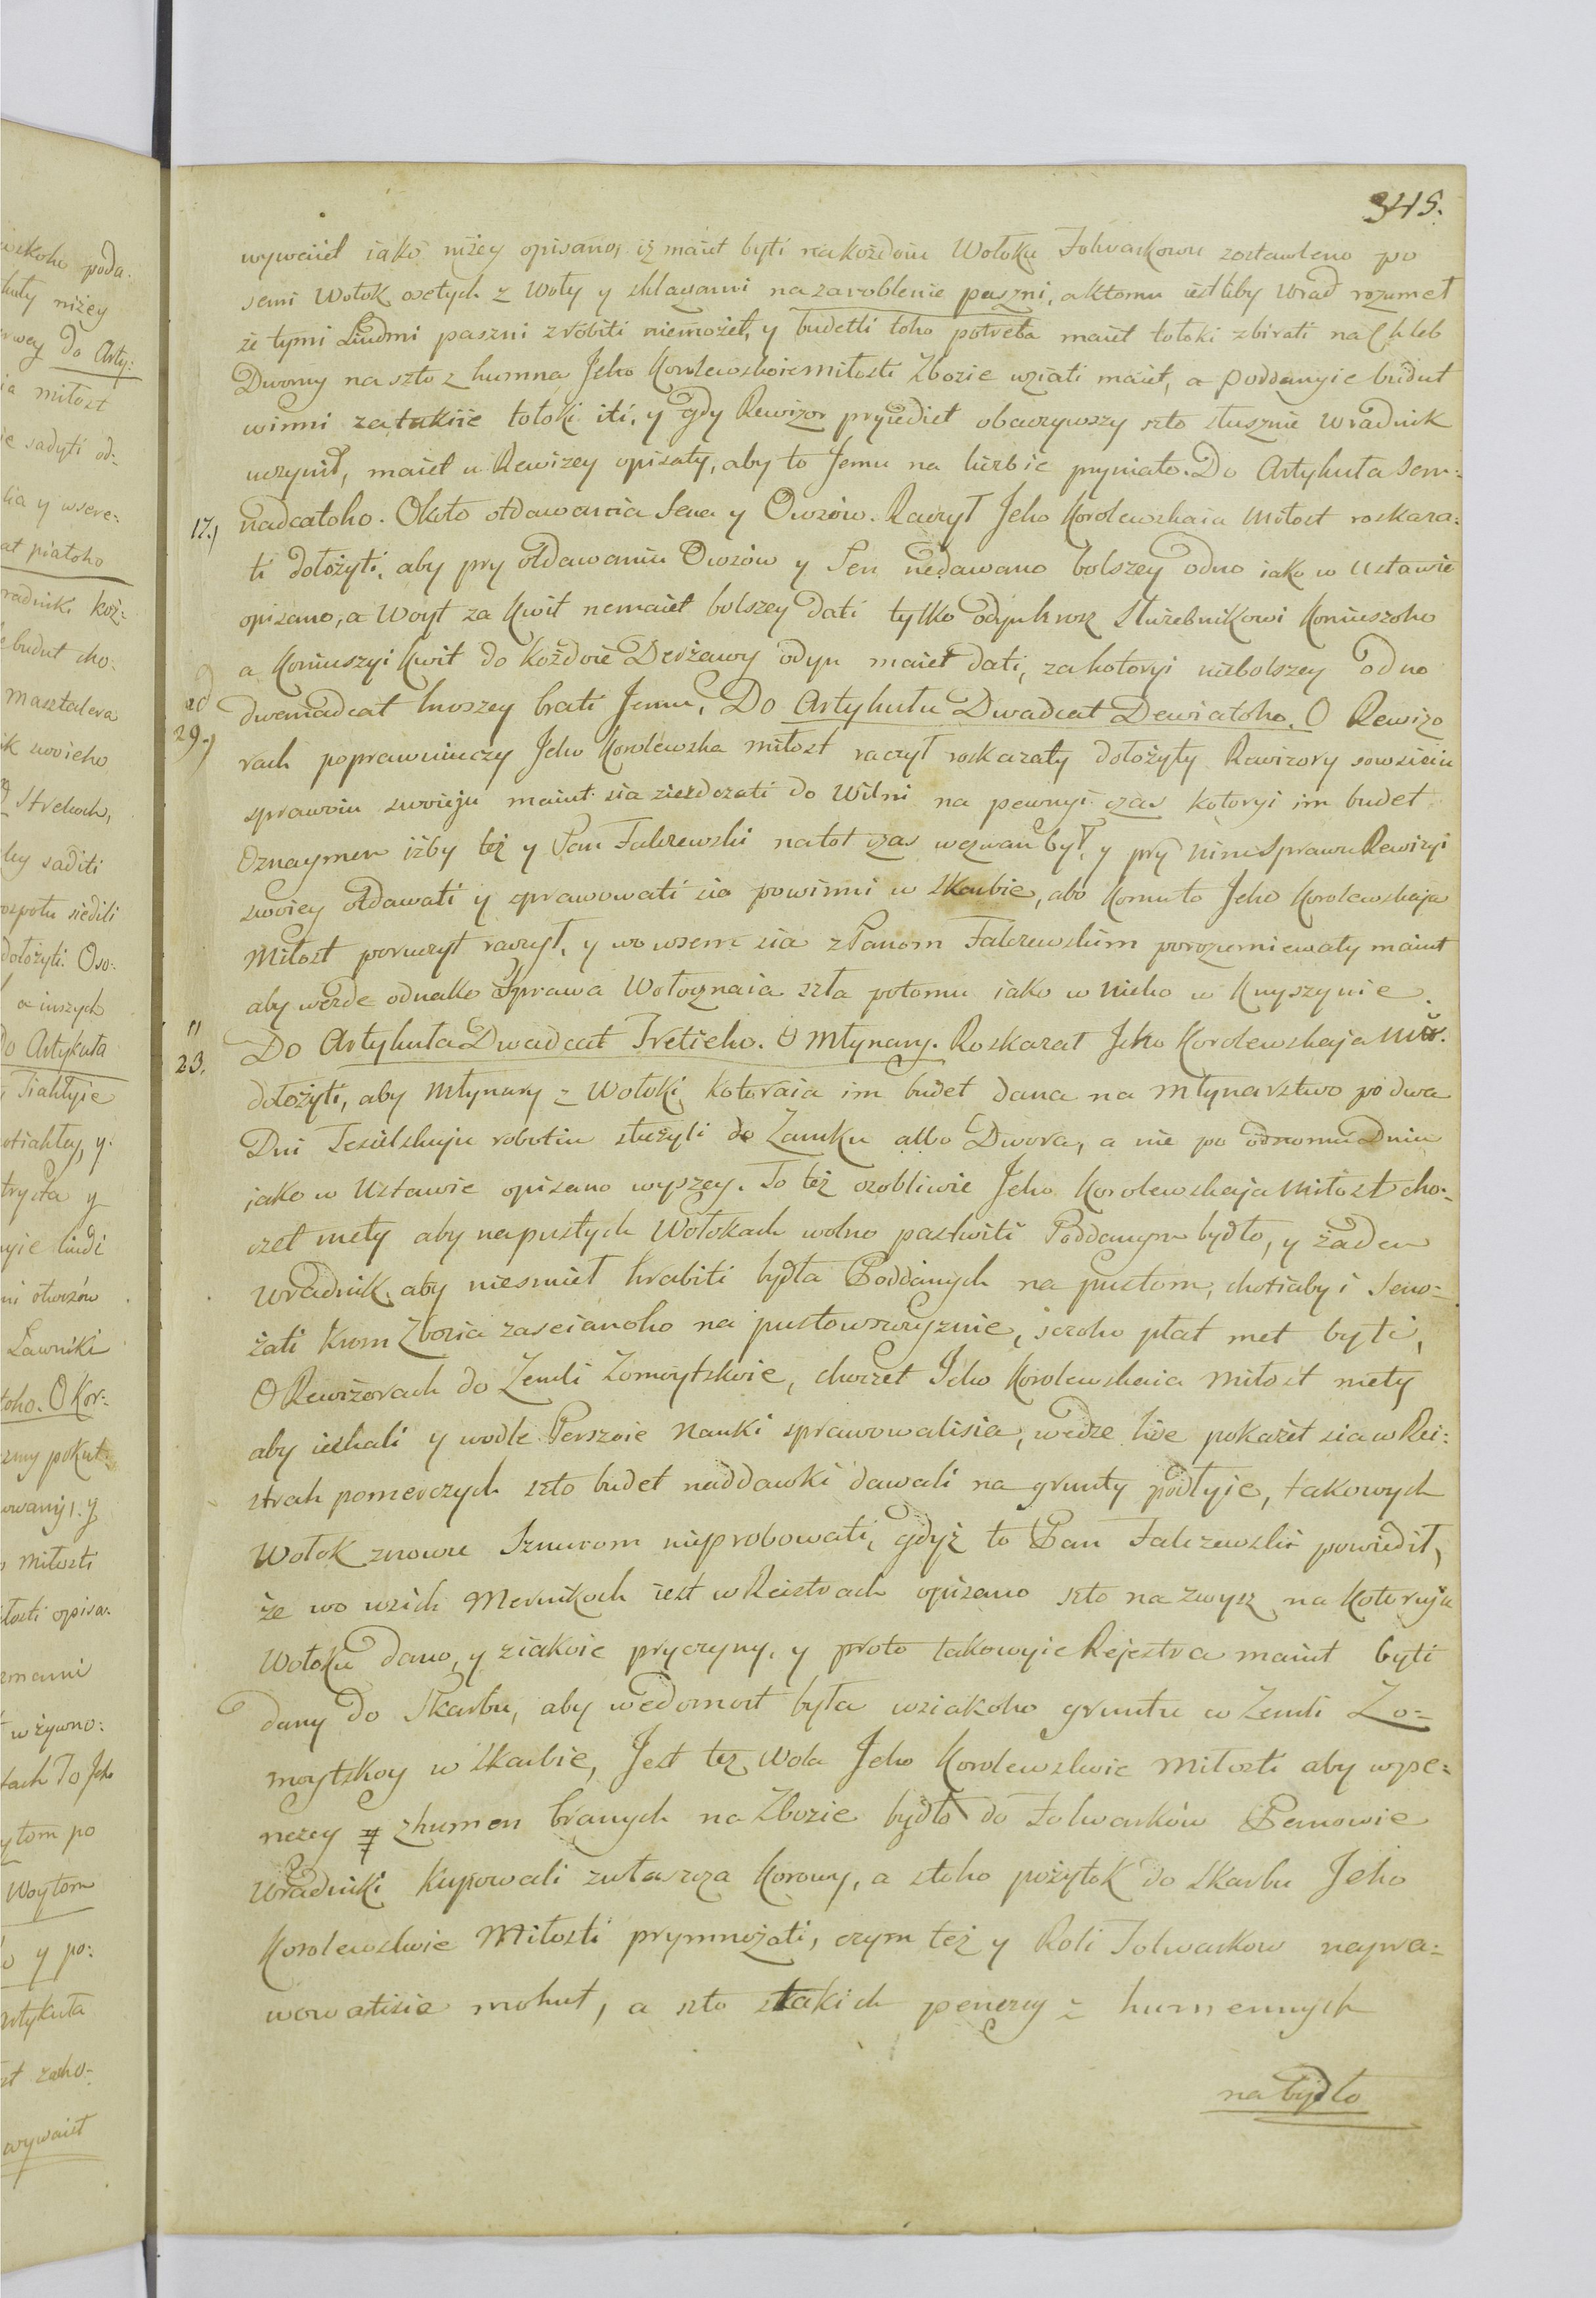 345.
wywaiet iako niżey opisano, iż maiet byti nakożdoiu Wołoku Folwarkowu zostawleno po
semi Wołok osełych z Woły y sklagami na zaroblenie paszni, aktomu iestliby Urad rozumeł
że tymi Liudmi paszni zrobiti niemożet, y budetli toho potreba maiet tołoki zbirati na Chleb
Dworny na szto z humna Jeho Korolewskoie Miłosti Zbozie wziati maiet, a poddanyie budut
winni zatakiie tołoki iti, y gdy Rewizor pryiediet obaczywszy szto słusznie Wradnik
uczynił, maiet u Rewizey opisaty, aby to Jemu na liczbie pryniato. Do Artykuła Sem-
17.) nadcatoho. Około otdawania Sena y Owsów. Raczył Jeho Korolewskaia Miłost roskaza-
ti dołożyti, aby pry otdawaniu Owsów y Sen nedawano bolszey odno iako w Ustawie
opisano, a Woyt za Kwit nemaiet bolszey dati tylko odyn hrosz Służebnikowi Koniuszoho
a Koniuszyi Kwit do kożdoie Derżawy odyn maiet dati, za kotoryi niebolszey odno
ad dwenadcat hroszey brati Jemu. Do Artykułu Dwadcat Dewiatoho. O Rewizo
29.) rach poprawuiuczy Jeho Korolewska miłost raczył roskazaty dołożyty Rewizory sowsieiu
sprawoiu swoieju maiut sia ziezdczati do Wilni na pewnyi czas kotoryi im budet
Oznaymen iżby też y Pan Falczewski na tot czas wezwan był, y pry nim Sprawu Rewizyi
swoiey otdawati y sprawowati sia powinni w Skarbie, abo komu to Jeho Korolewskaja
Miłost poruczyt raczył, y wo wsem sia z Panom Falczewskim porozumiewaty maiut
aby wezde odnako Sprawa Wołocznaia szła potomu iako w nieho w Knyszynie.
" 23. Do Artykuła Dwadcat Tretieho. O Młynary. Roskazał Jeho Korolewskaja Mił.
dołożyti, aby Młynary z Wołoki kotoraia im budet dana na Młynarstwo po dwa
Dni Tesielskuju robotiu służyli do Zamku albo Dwora, a nie po odnomu Dniu
jako w Ustawie opisano wyszey. To też osobliwie Jeho Korolewskaja Miłost cho-
czet mety aby napustych Wołokach wolno pastwiti Poddanym bydło, y żaden
Wradnik aby niesmieł hrabiti bydła Poddanych na pustom, chotiaby i Seno-
żati krom Zbozia zascianoho na pustowszczyznie, s czoho płat met byti,
O Rewizorach do Zemli Żomoytskoie, choczet Jeho Korolewskaia Miłost mety
aby iechali y wodle Perszoie Nauki sprawowalisia, wedze hde pokażet sia w Rei-
strah pomerczych szto budet naddawki dawali na grunty podłyie, takowych
Wołok znowu Sznurom nieprobowati, gdyż to Pan Falczewski powiedił,
że wo wsich Mernikoch iest w Reistrach opisano szto na zwysz na kotoruju
Wołoku dano, y ziakoie pryczyny, y proto takowyie Rejestra maiut byti
dany do Skarbu, aby wedomost była wsiakoho gruntu w Zemli Żo-
moytskoy w Skarbie, Jest też Wola Jeho Korolewskoie Miłosti aby wpe-
nezey z humen branych na Zbozie bydło do Folwarków Panowie
Uradniki kupowali zwłaszcza Korowy, a stoho pożytok do Skarbu Jeho
Korolewskoie Miłosti prymnożati, czym też y Roli Folwarkow napra-
wowatisie mohut, a szto stakich penezey z humennych
na bydło